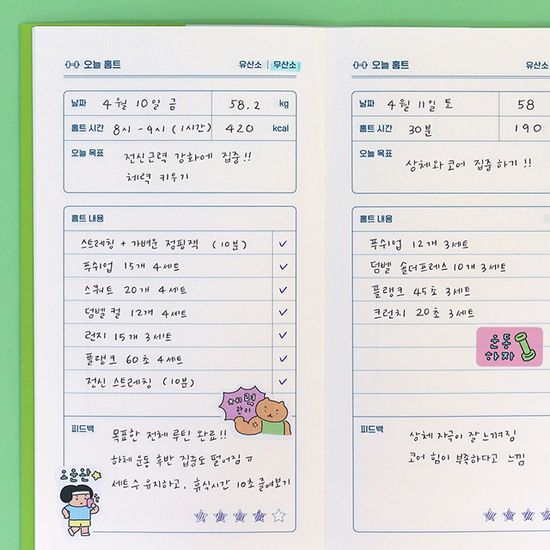 오늘 홈트 유산소 | 무산소
날짜 4월 10일 금 58.2 kg
홈트 시간 8시-9시 (1시간) 420 kcal
오늘 목표 전신근력 강화에 집중!!
체력 키우기
홈트 내용
스트레칭 + 가벼운 점핑잭 (10분) ✓
푸쉬업 15개 4세트 ✓
스쿼트 20개 4세트 ✓
덤벨 컬 12개 4세트 ✓
런지 15개 3세트 ✓
플랭크 60초 4세트 ✓
전신 스트레칭 (10분) ✓
체력
관리
피드백
목표한 전체 루틴 완료!!
하체 운동 후반 집중도 떨어짐 ㅠ
세트수 유지하고, 휴식시간 10초 줄여보기
오운완
오늘 홈트
날짜 4월 11일 토 58
홈트 시간 30분 190
오늘 목표 상체와 코어 집중하기!!
홈트 내용
푸쉬업 12개 3세트
덤벨 숄더프레스 10개 3세트
플랭크 45초 3세트
크런치 20초 3세트
운동
하자
피드백
상체 자극이 잘 느껴짐
코어 힘이 부족하다고 느낌